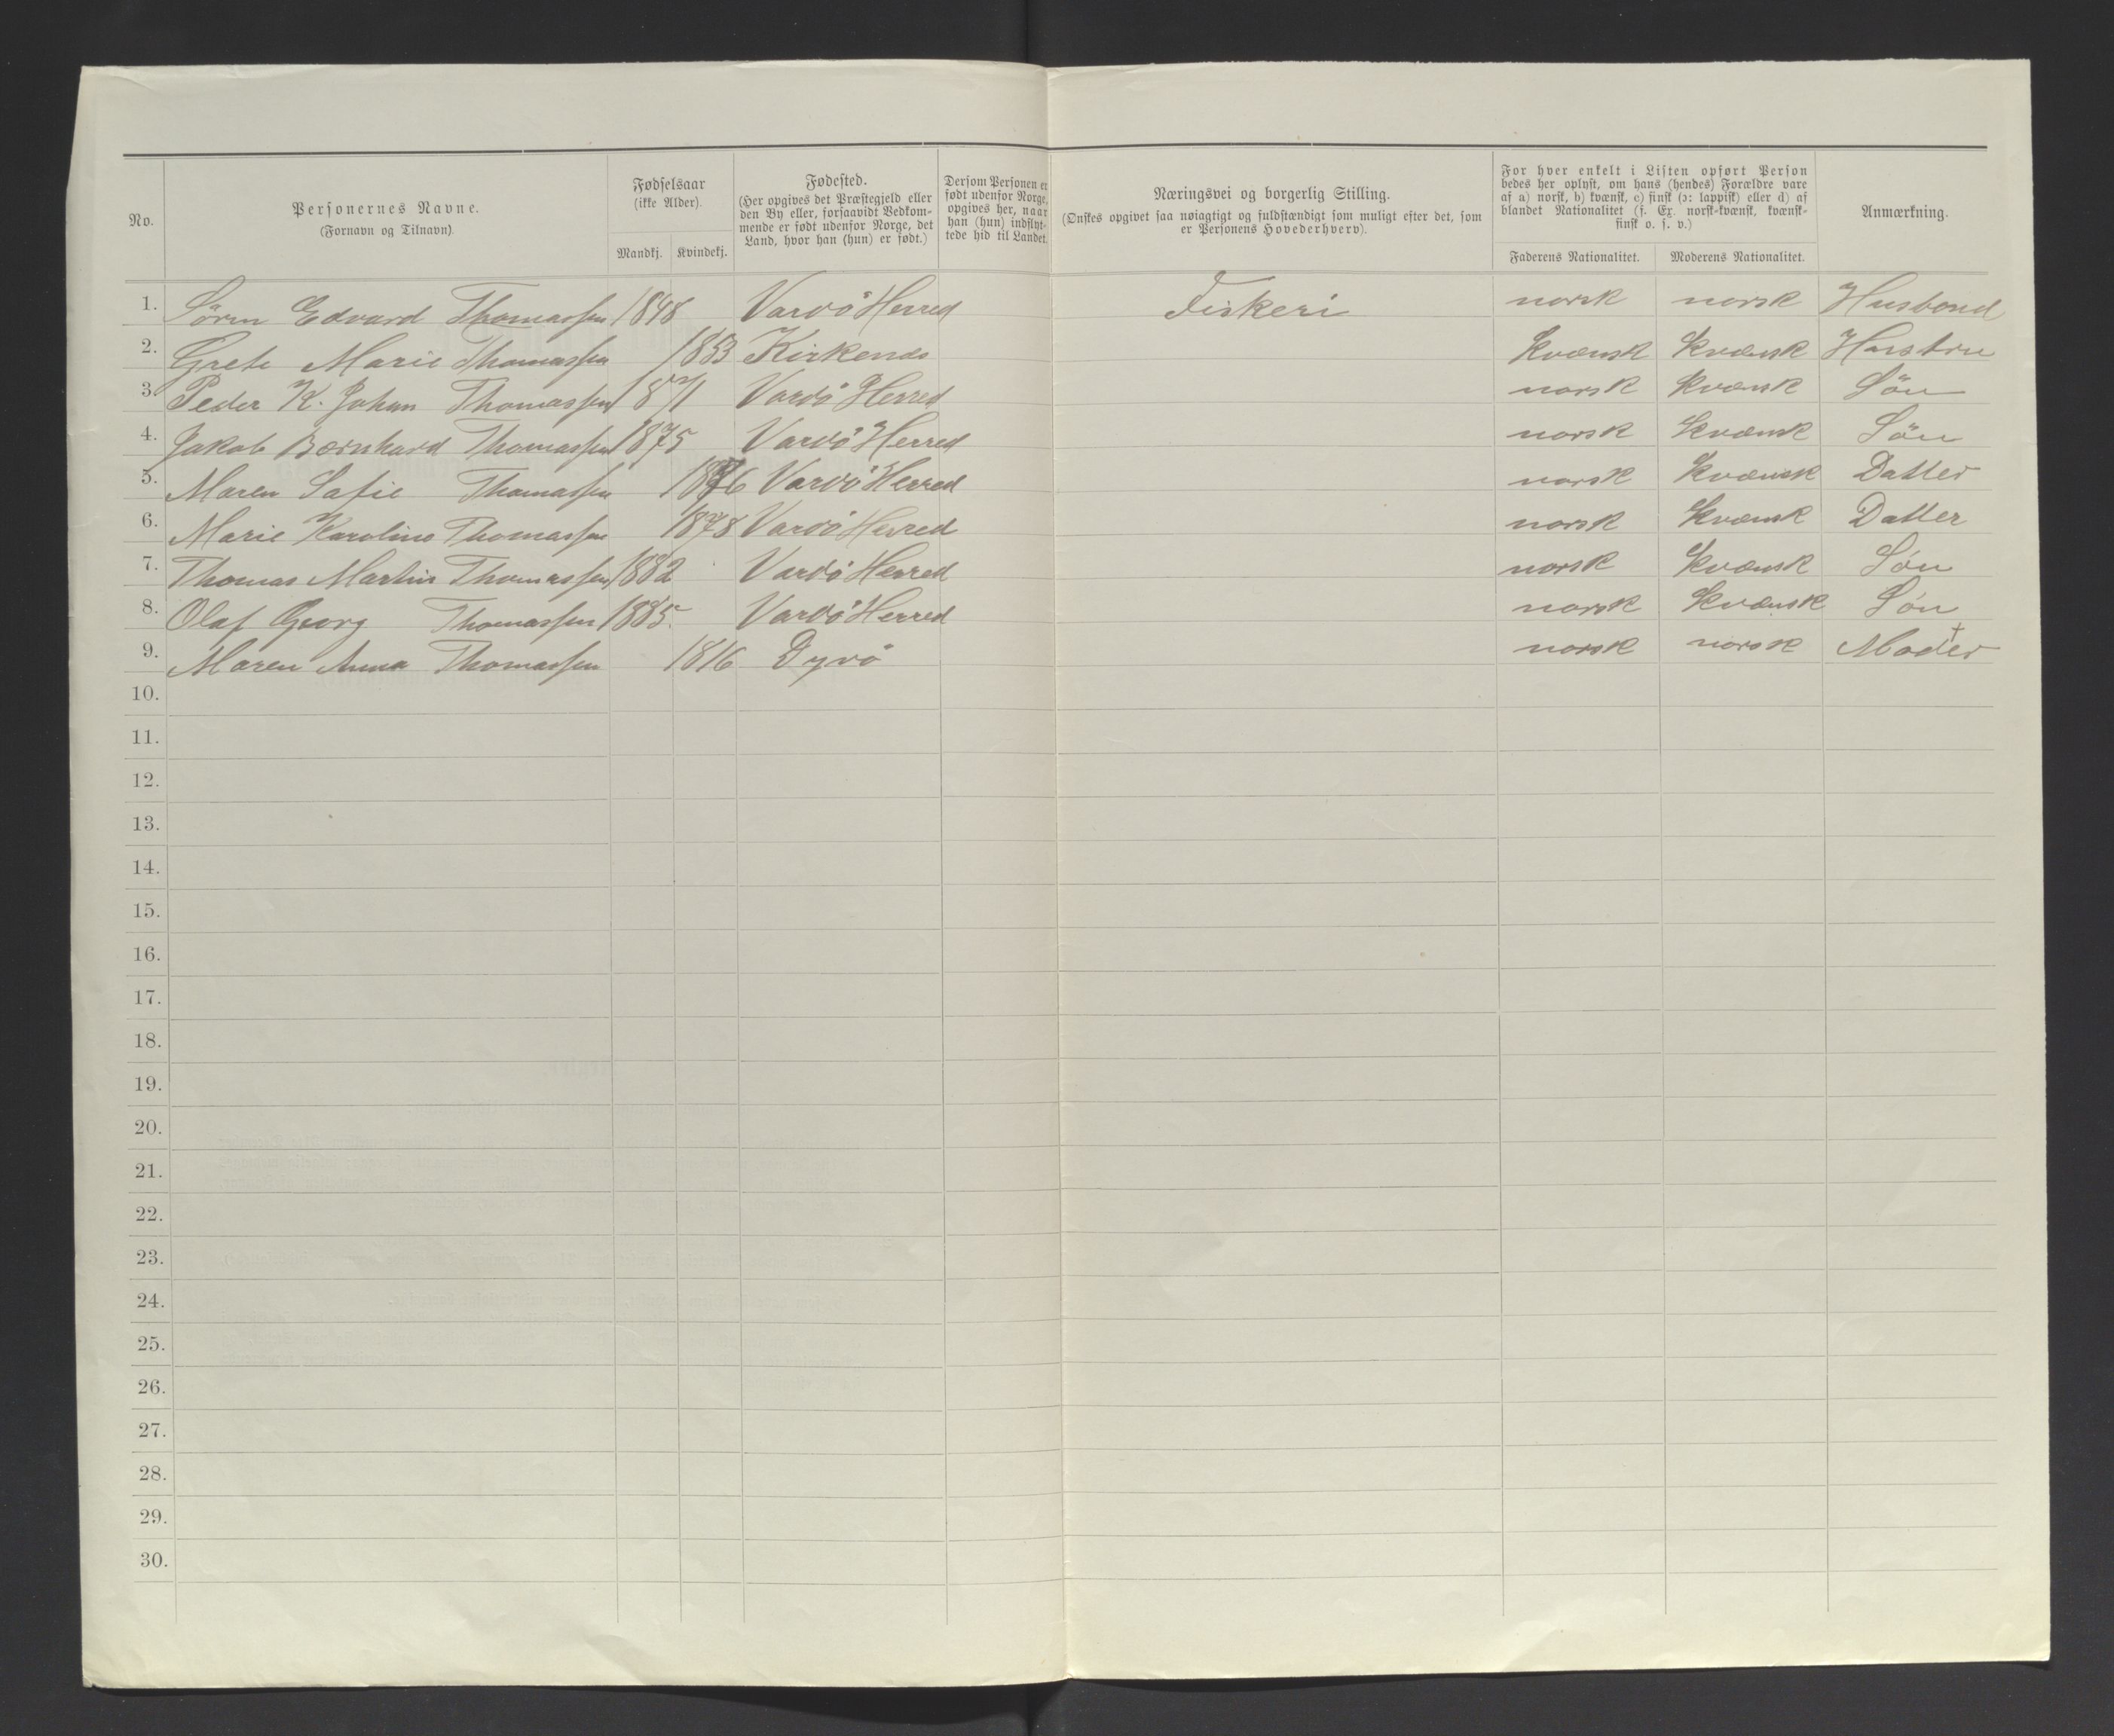 No.
Personernes Navne.
(Fornavn og Tilnavn).
Fødselsaar
(ikke Alder).
Mandkj. Kvindekj.
Fødested.
(Her opgives det Præstegjeld eller
den By eller, forsaavidt Vedkom-
mende er født udenfor Norge, det
Land, hvor han (hun) er født.)
Dersom Personen er
født udenfor Norge,
opgives her, naar
han (hun) indflyt-
tede hid til Landet.
Næringsvei og borgerlig Stilling.
(Ønskes opgivet saa nøiagtigt og fuldstændigt som muligt efter det, som
er Personens Hovederhverv).
For hver enkelt i Listen opført Person
bedes her oplyst, om hans (hendes) Forældre vare
af a) norsk, b) kvænsk, c) finsk (ɔ: lappisk) eller d) af
blandet Nationalitet (f. Ex. norsk-kvænsk, kvænsk-
finsk o. s. v.)
Faderens Nationalitet. Moderens Nationalitet.
Anmærkning.
1. Sörin Edvard Thomassen 1848 Vardö Herred Fiskeri norsk norsk Husbond
2. Grete Marie Thomassen 1853 Kirkenæs Kvænsk Kvænsk Hustru
3. Peder K. Johan Thomassen 1871 Vardö Herred norsk Kvænsk Sön
4. Jakob Bærnhard Thomassen 1875 Vardö Herred norsk Kvænsk Sön
5. Maren Safie Thomassen 1876 Vardö Herred norsk Kvænsk Datter
6. Marie Karoline Thomassen 1878 Vardö Herred norsk Kvænsk Datter
7. Thomas Martin Thomassen 1882 Vardö Herred norsk Kvænsk Sön
8. Olaf Georg Thomassen 1885. Vardö Herred norsk Kvænsk Sön
9. Maren Anna Thomassen 1816 Dyrö norsk norsk Moder †
10.
11.
12.
13.
14.
15.
16.
17.
18.
19.
20.
21.
22.
23.
24.
25.
26.
27.
28.
29.
30.